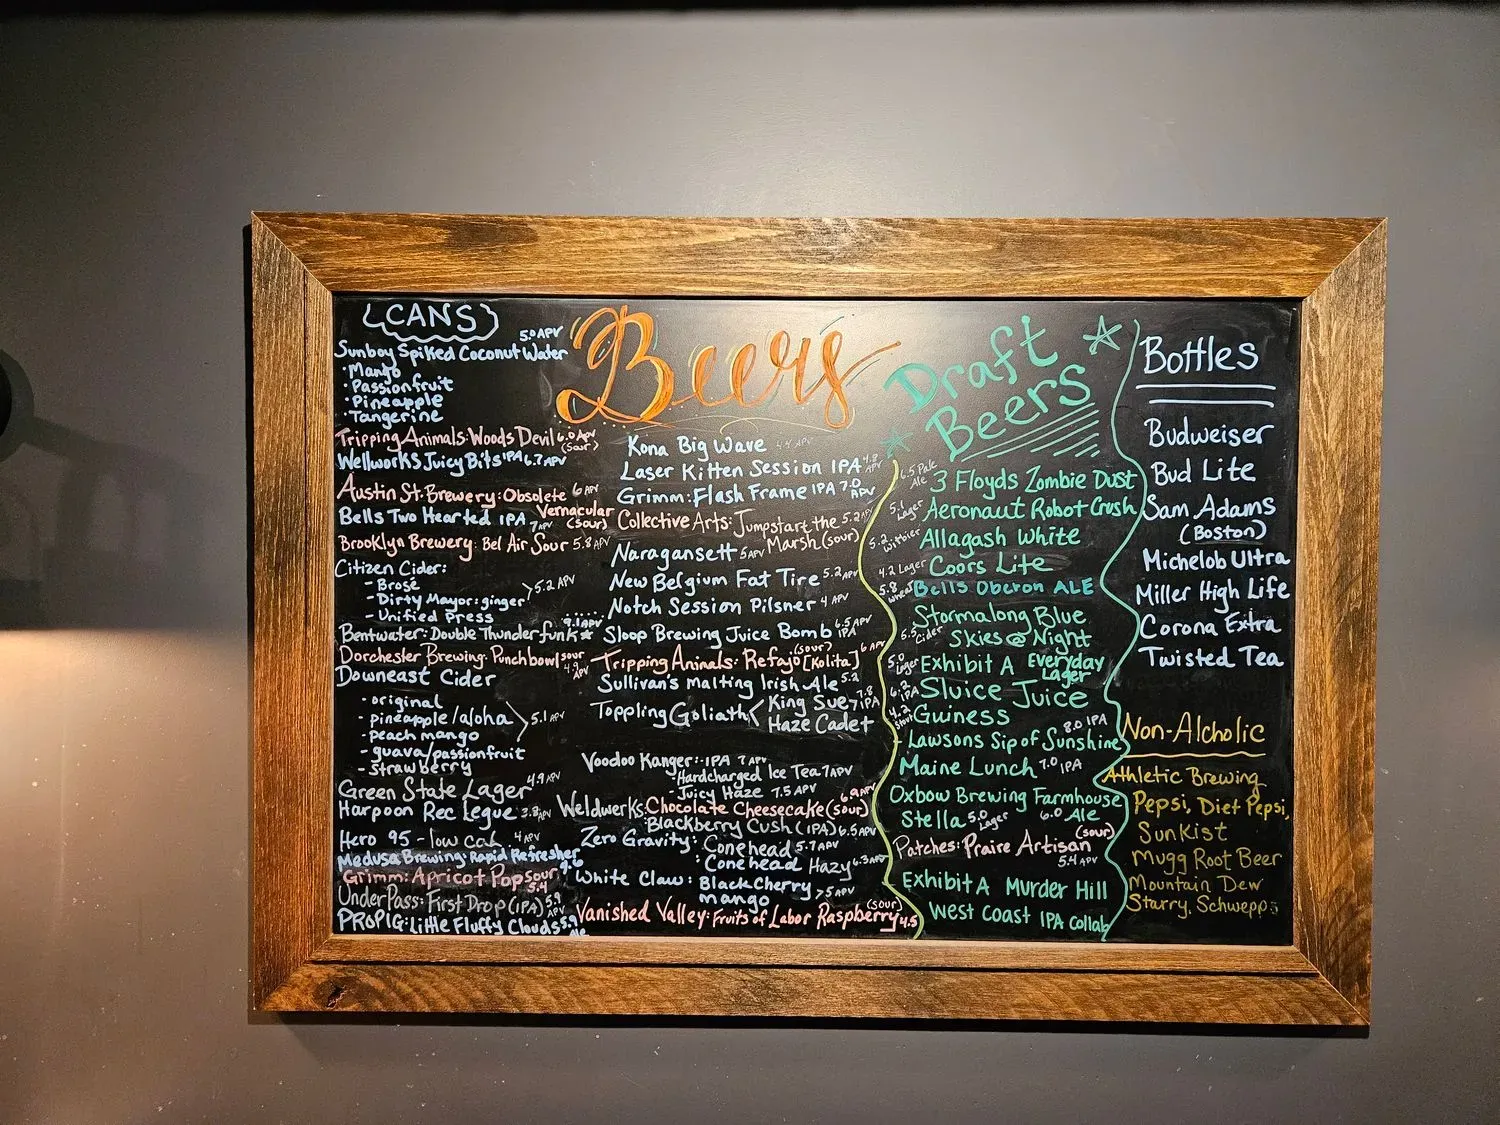 CANS
5.0 APV
Sunboy Spiked Coconut Water
· Mango
· Passionfruit
· Pineapple
· Tangerine
Tripping Animals: Woods Devil 6.0 APV (sour)
Wellworks Juicy Bits IPA 6.7 APV
Austin St. Brewery: Obsolete 6 APV
Vernacular (sour)
Bells Two Hearted IPA 7 APV
Brooklyn Brewery: Bel Air Sour 5.8 APV
Citizen Cider:
- Brosé
- Dirty Mayor: ginger > 5.2 APV
- Unified Press
9.1 APV
Bentwater: Double Thunderfunk
Dorchester Brewing: Punchbowl sour 4.9 APV
Downeast Cider
- original
- pineapple/aloha
- peach mango > 5.1 APV
- guava/passionfruit
- strawberry
Green State Lager 4.9 APV
Harpoon Rec Legue 3.8 APV
Hero 95 - low cal 4 APV
Medusa Brewing: Rapid Refresher
4.6
Grimm: Apricot Pop sour 5.4
UnderPass: First Drop (IPA) 5.9 APV
PROPIG: Little Fluffy Clouds 5.9
Beers
Kona Big Wave 4.4 APV
Laser Kitten Session IPA 4.8 APV
Grimm: Flash Frame IPA 7.0 APV
Collective Arts: Jumpstart the 5.2 APV
Marsh (sour)
Naragansett 5 APV
New Belgium Fat Tire 5.2 APV
Notch Session Pilsner 4 APV
Sloop Brewing Juice Bomb 6.5 APV IPA
Tripping Animals: Refajo [Kolita] (sour) 6 APV
Sullivan's Malting Irish Ale 5.2
Toppling Goliath < King Sue 7.8 IPA
Haze Cadet 7 IPA
Voodoo Kanger: - IPA 7 APV
- Hardcharged Ice Tea 7 APV
- Juicy Haze 7.5 APV
Weldwerks: Chocolate Cheesecake (sour)
Blackberry Cush (IPA) 6.5 APV
Zero Gravity: Conehead 5.7 APV
: Conehead Hazy 6.3 APV
White Claw: BlackCherry > 5 APV
mango
Vanished Valley: Fruits of Labor Raspberry (sour) 4.5
Draft
Beers
6.5 Pale Ale 3 Floyds Zombie Dust
5. Lager Aeronaut Robot Crush
5.2 Witbier Allagash White
4.2 Lager Coors Lite
5.8 Wheat Bells Oberon ALE
Stormalong Blue
5.5 Cider Skies @ Night
5.0 Lager Exhibit A Everyday
Lager
6.2 IPA Sluice Juice
4.2 Stout Guiness
8.0 IPA
- Lawsons Sip of Sunshine
Maine Lunch 7.0 IPA
Oxbow Brewing Farmhouse
6.0 Ale
Stella 5.0 Lager
Patches: Praire Artisan (sour)
5.4 APV
Exhibit A Murder Hill
West Coast IPA collab
Bottles
Budweiser
Bud Lite
Sam Adams
(Boston)
Michelob Ultra
Miller High Life
Corona Extra
Twisted Tea
Non-Alcholic
Athletic Brewing
Pepsi, Diet Pepsi,
Sunkist
Mugg Root Beer
Mountain Dew
Starry, Schwepps